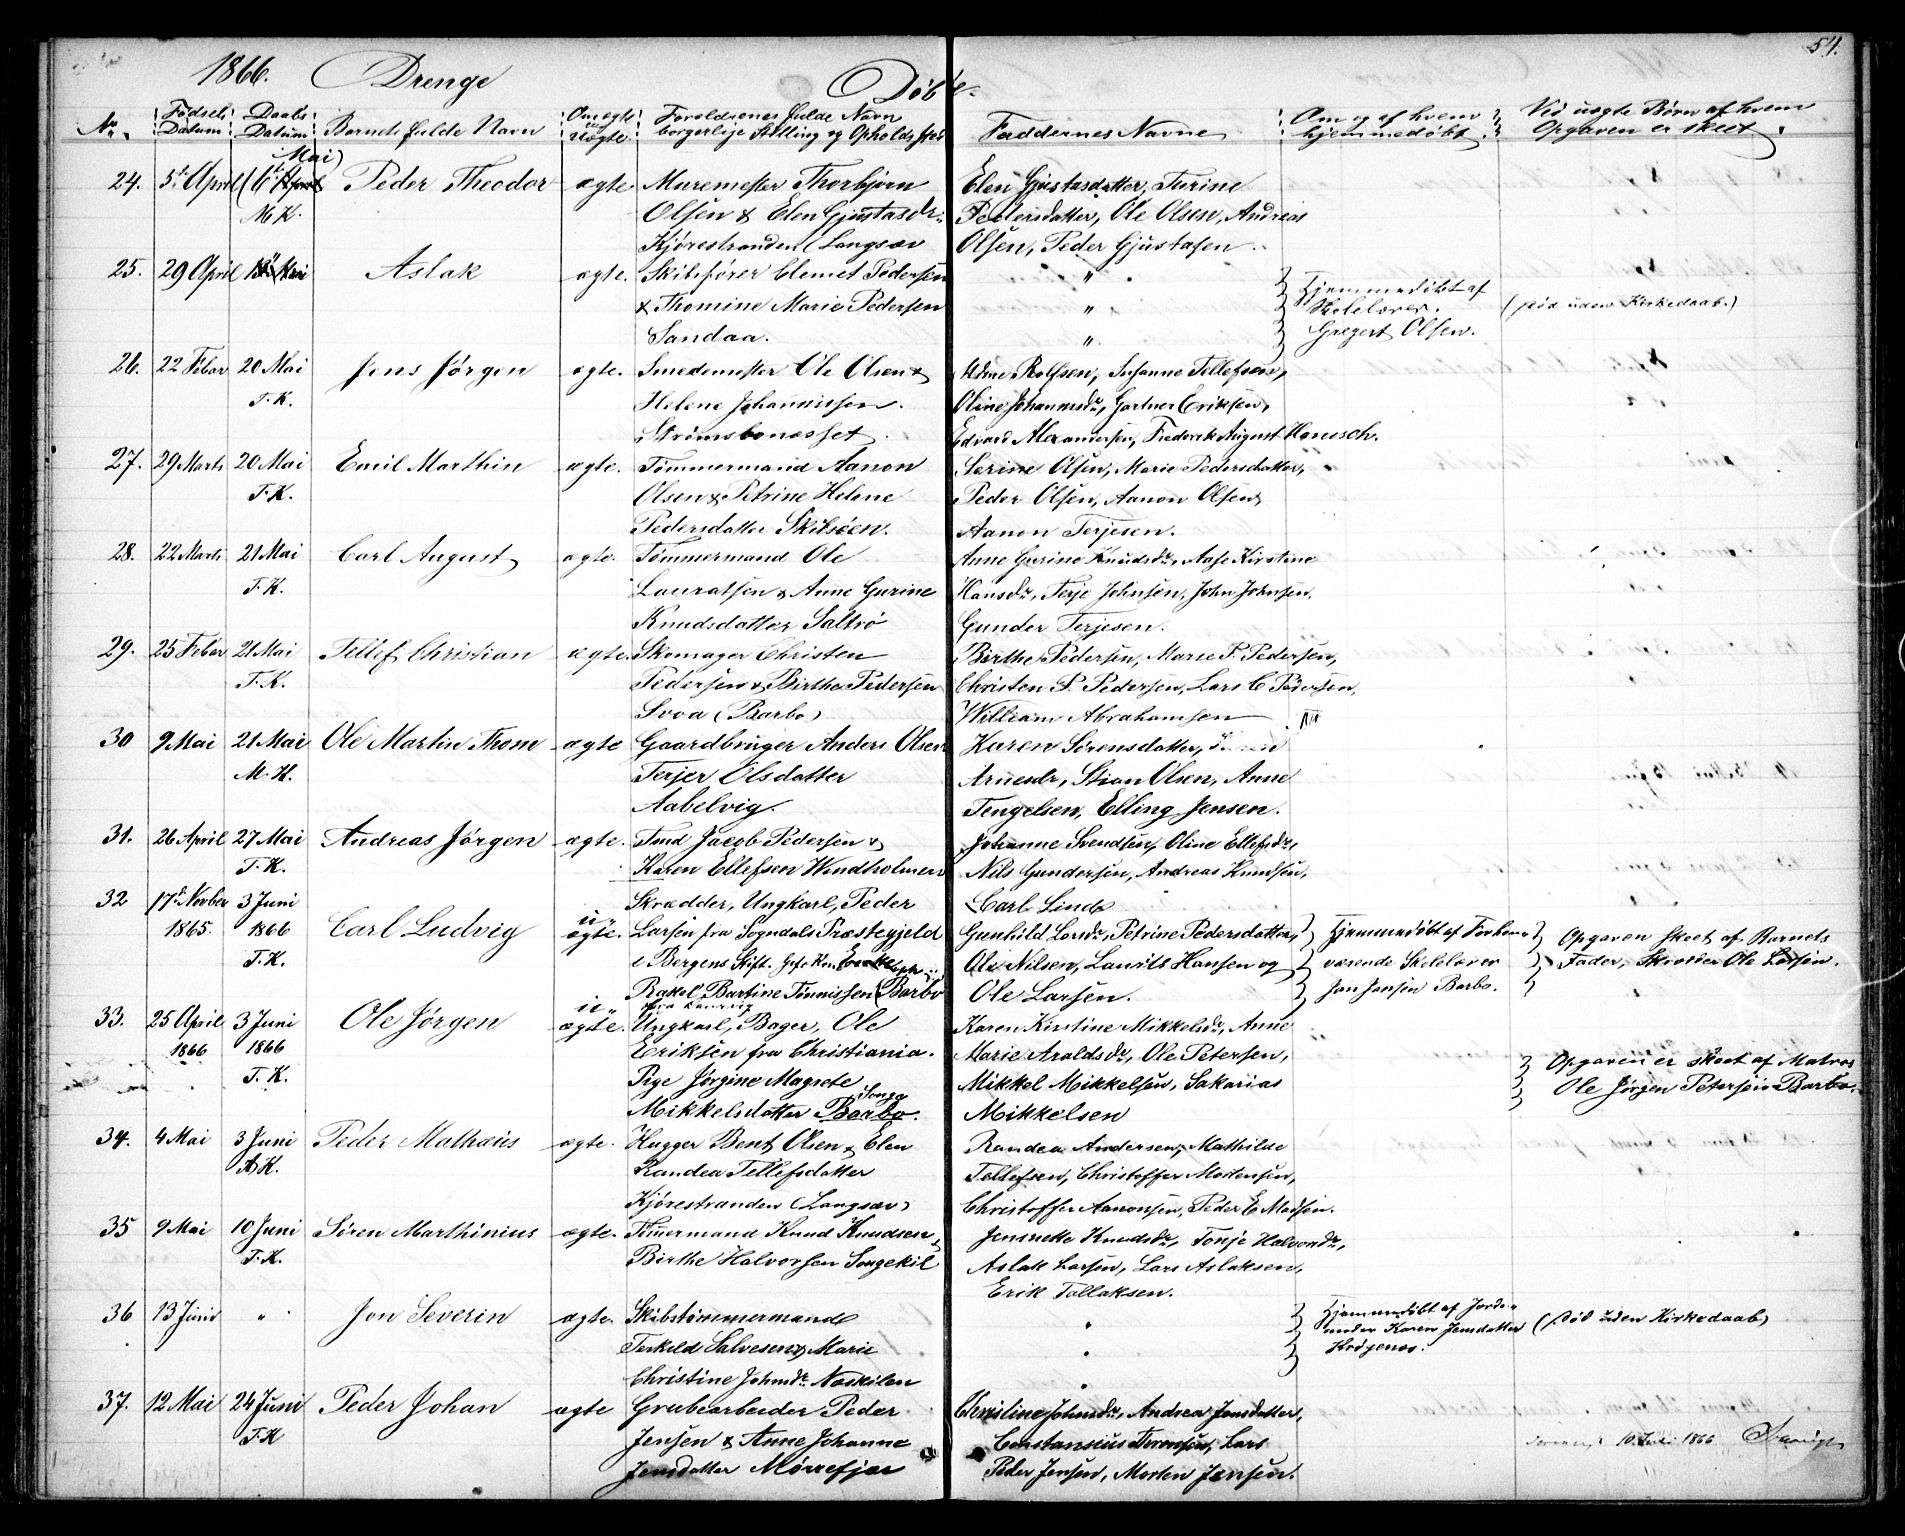 1866. Drenge Døbte. 51.
No. Fødsels Datum Daabs Datum Barnets fulde Navn Om ægte uægte Forældrenes fulde Navn borgerlige Stilling og Opholdssted Faddernes Navne Om og af hvem hjemmedøbt Ved uægte Børn af hvem Opgaven er skeet
24. 5te April 6te April Mai Peder Theodor ægte Muremester Thorbjørn Elen Gjustasdatter, Turine
M K. Olsen & Elen Gjustasdr. Pedersdatter, Ole Olsen, Andreas
Kjørestranden (Langsæv Olsen, Peder Gjustasen
25. 29 April Mai Aslak ægte. Skibsfører Clemet Pedersen " Hjemmedøbt af
& Thomine Marie Pedersen " Skolelærer. (død uden Kirkedaab.)
Sandaa. " Gregert Olsen.
26. 22 Febar 20 Mai Jens Jørgen ægte. Smedemester Ole Olsen & Rolfsen, Susanne Tellefsen,
T. K. Helene Johannissen. Oline Johannesdr, Gartner Eriksen,
Strømsbonæsset. Edvard Alexandersen, Frederik August Hansch.
27. 29 Marts 20 Mai Emil Marthin ægte. Tømmermand Aanon Serine Olsen, Marie Pedersdatter,
T. K. Olsen & Petrine Helene Peder Olsen, Aanon Olsen,
Pedersdatter Skilsøen. Aanon Terjesen.
28. 22 Marts 21 Mai Carl August ægte. Tømmermand Ole Anne Gurine Knudsdr, Aase Kirstine
T. K. Lauratsen & Anne Gurine Hansdr, Terje Johnsen, John Johnsen,
Knudsdatter Saltrø Gunder Terjesen.
29. 25 Febar 21 Mai Tellef Christian ægte. Skomager Christen Birthe Pedersen, Marie P. Pedersen,
T. K. Pedersen & Birthe Pedersen Christen P. Pedersen, Lars C Pedersen,
Svoa (Barbo) William Abrahamsen
30 9 Mai 21 Mai Ole Martin Thom ægte Gaardbruger Anders Olsen Karen Sørensdatter,
M. K. Terjer Olsdatter Arnesdr, Stian Olsen, Anne
Aabelvig. Tengelsen, Elling Jensen.
31. 26 April 27 Mai Andreas Jørgen ægte. Tmd Jacob Pedersen & Johanne Svendsen, Oline Ellefsdr,
T. K. Karen Ellefsen Windholmen Nils Gundersen, Andreas Knudsen,
32 17de Novber 3 Juni Skrædder, Ungkarl, Peder Carl Lind
1865. 1866 Carl Ludvig u- ægte. Larsen fra Sogndals Præstegjeld Gunhild Larsdr, Petrine Pedersdatter, Hjemmedøbt af Forhen- Opgaven skeet af Barnets
T. K. i Bergens Stift. Ole Nilsen, Laurits Hansen og værende Skolelærer Fader, Skræder Ole Larsen.
Rakel Bartine Tønnissen (Barbo Ole Larsen. Jan Jansen Barbo.
33. 25 April 3 Juni Ole Jørgen u- ægte. Ungkarl, Bager, Ole Karen Kirstine Mikkelsdr, Anne
1866 1866 Eriksen fra Christiania. Marie Araldsdr, Ole Petersen, Opgaven er skeet af Matros
T. K. Pige Jørgine Magrete Mikkel Mikkelsen, Sakarias Ole Jørgen Petersen Barbo.
Mikkelsdatter Barbo. Songe Mikkelsen
34. 4 Mai 3 Juni Peder Mathæus ægte. Hugger Bent Olsen & Elen Randea Andersen, Mathilde
A K. Randea Tellefsdatter Tellefsen, Christoffer Mortensen,
Kjørestranden (Langsæv) Christoffer Aanonsen, Peder E Madsen.
35 9 Mai 10 Juni Søren Marthinius ægte. Timermand Knud Knudsen & Jensette Knudsdr, Tonje Halvorsdr,
T. K. Birthe Halvorsen Songekil Aslak Larsen, Lars Aslaksen,
Erik Tallaksen.
36 13 Juni " Jon Severin ægte. Skibstømmermand " Hjemmedøbt af Jorde-
Terkild Salvesen & Marie moder Karen Jensdatter (død uden Kirkedaab)
Christine Johnsdr. Næskilen Krøgenæs.
37. 12 Mai 24 Juni Peder Johan ægte Grubearbeider Peder Christine Johnsdr, Andrea Jensdatter,
T. K Jensen & Anne Johanne Constansius Lars
Jensdatter Mørrefjær Peder Jensen, Morten Jensen. 10 Juli 1866